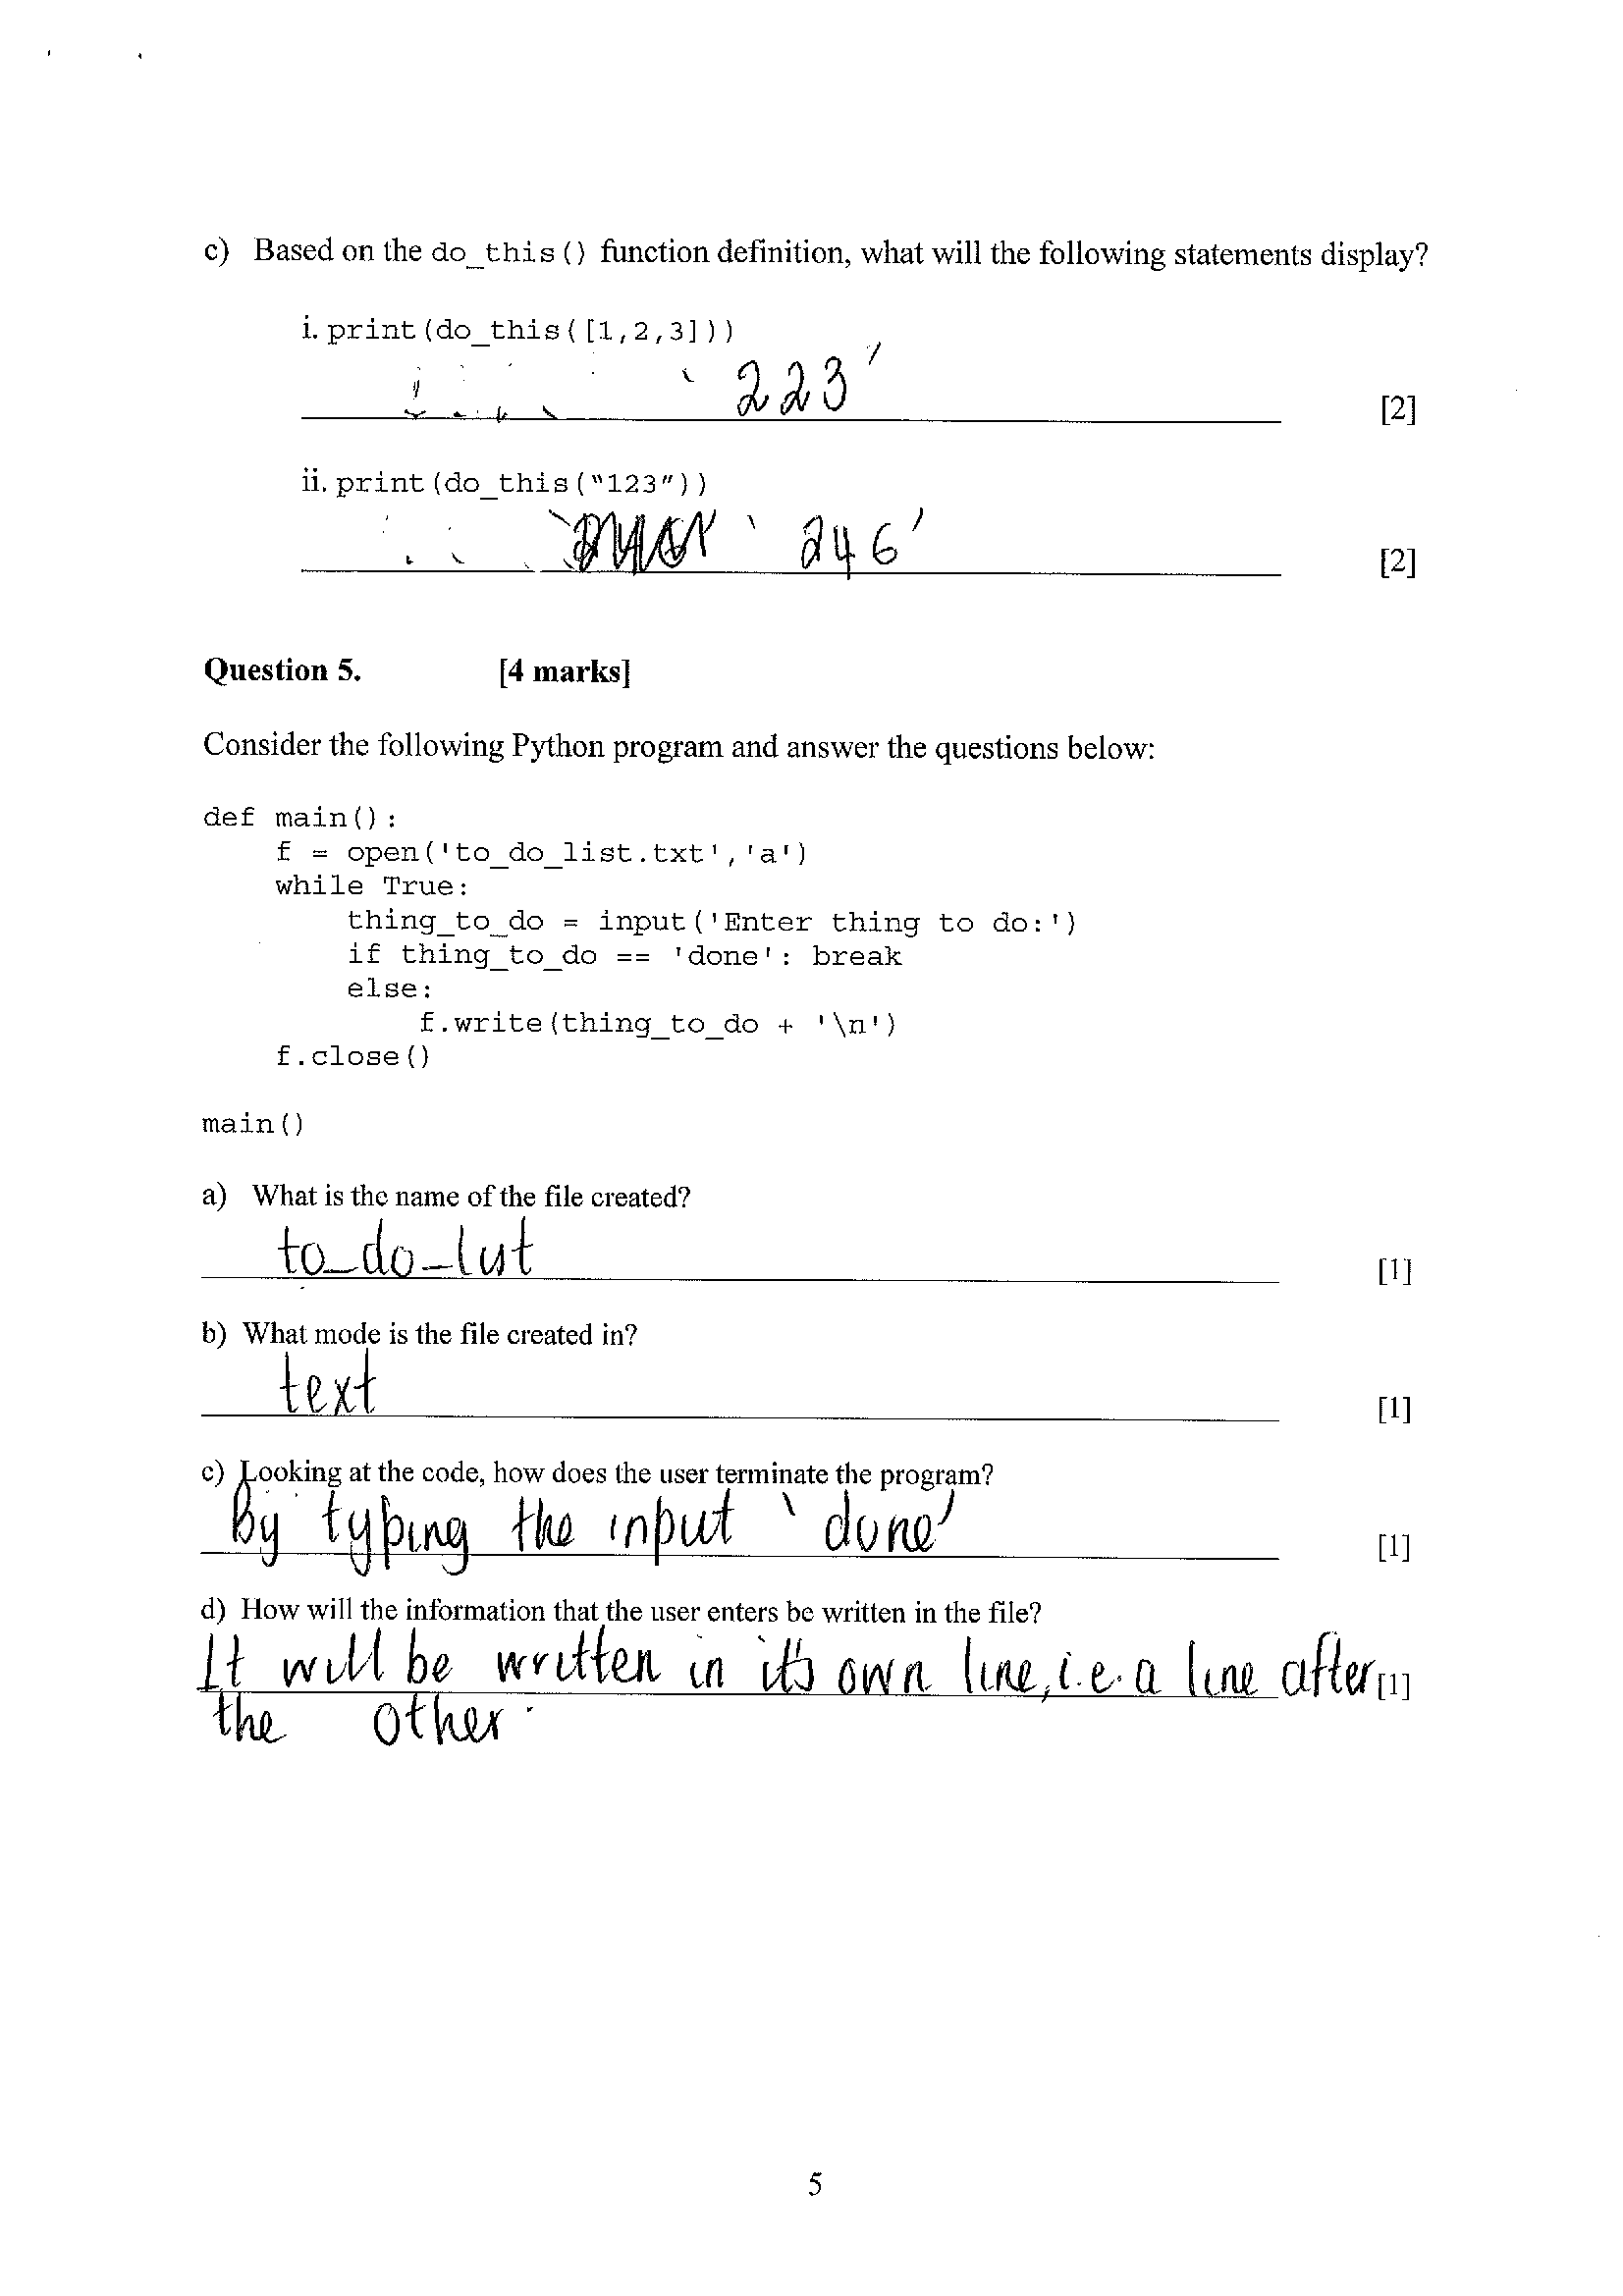 c) Based on the do_this() function definition, what will the following statements display?
i. print(do_this([1,2,3]))
' 223 '
[2]
ii. print(do_this("123"))
' 246 '
[2]
Question 5. [4 marks]
Consider the following Python program and answer the questions below:
def main():
f = open('to_do_list.txt','a')
while True:
thing_to_do = input('Enter thing to do:')
if thing_to_do == 'done': break
else:
f.write(thing_to_do + '\n')
f.close()
main()
a) What is the name of the file created?
to_do_list
[1]
b) What mode is the file created in?
text
[1]
c) Looking at the code, how does the user terminate the program?
By typing the input 'done'
[1]
d) How will the information that the user enters be written in the file?
It will be written in it's own line, i.e. a line after [1]
the other.
5